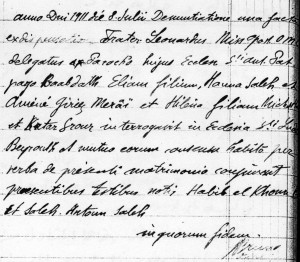 anno Dni 1911 die 8 Julii Denuntiatione una facta
ex dispensatio Frater Leonardus Miss Apost D. M.
delegatus a Parocho hujus Ecclesiæ Sti Ant. Pat.
pago Baabdath Eliam filium Hanna Saleh et
Améné Girig et Hilóia filiam Michel
et Katar Srour interrogavit in Ecclesia Sti
Beyrouth et mutuo eorum consensu habito per
verba de præsenti matrimonio conjunxit
præsentibus testibus notis Habib el Khoury
et Saleh Antoun Saleh
in quorum fidem